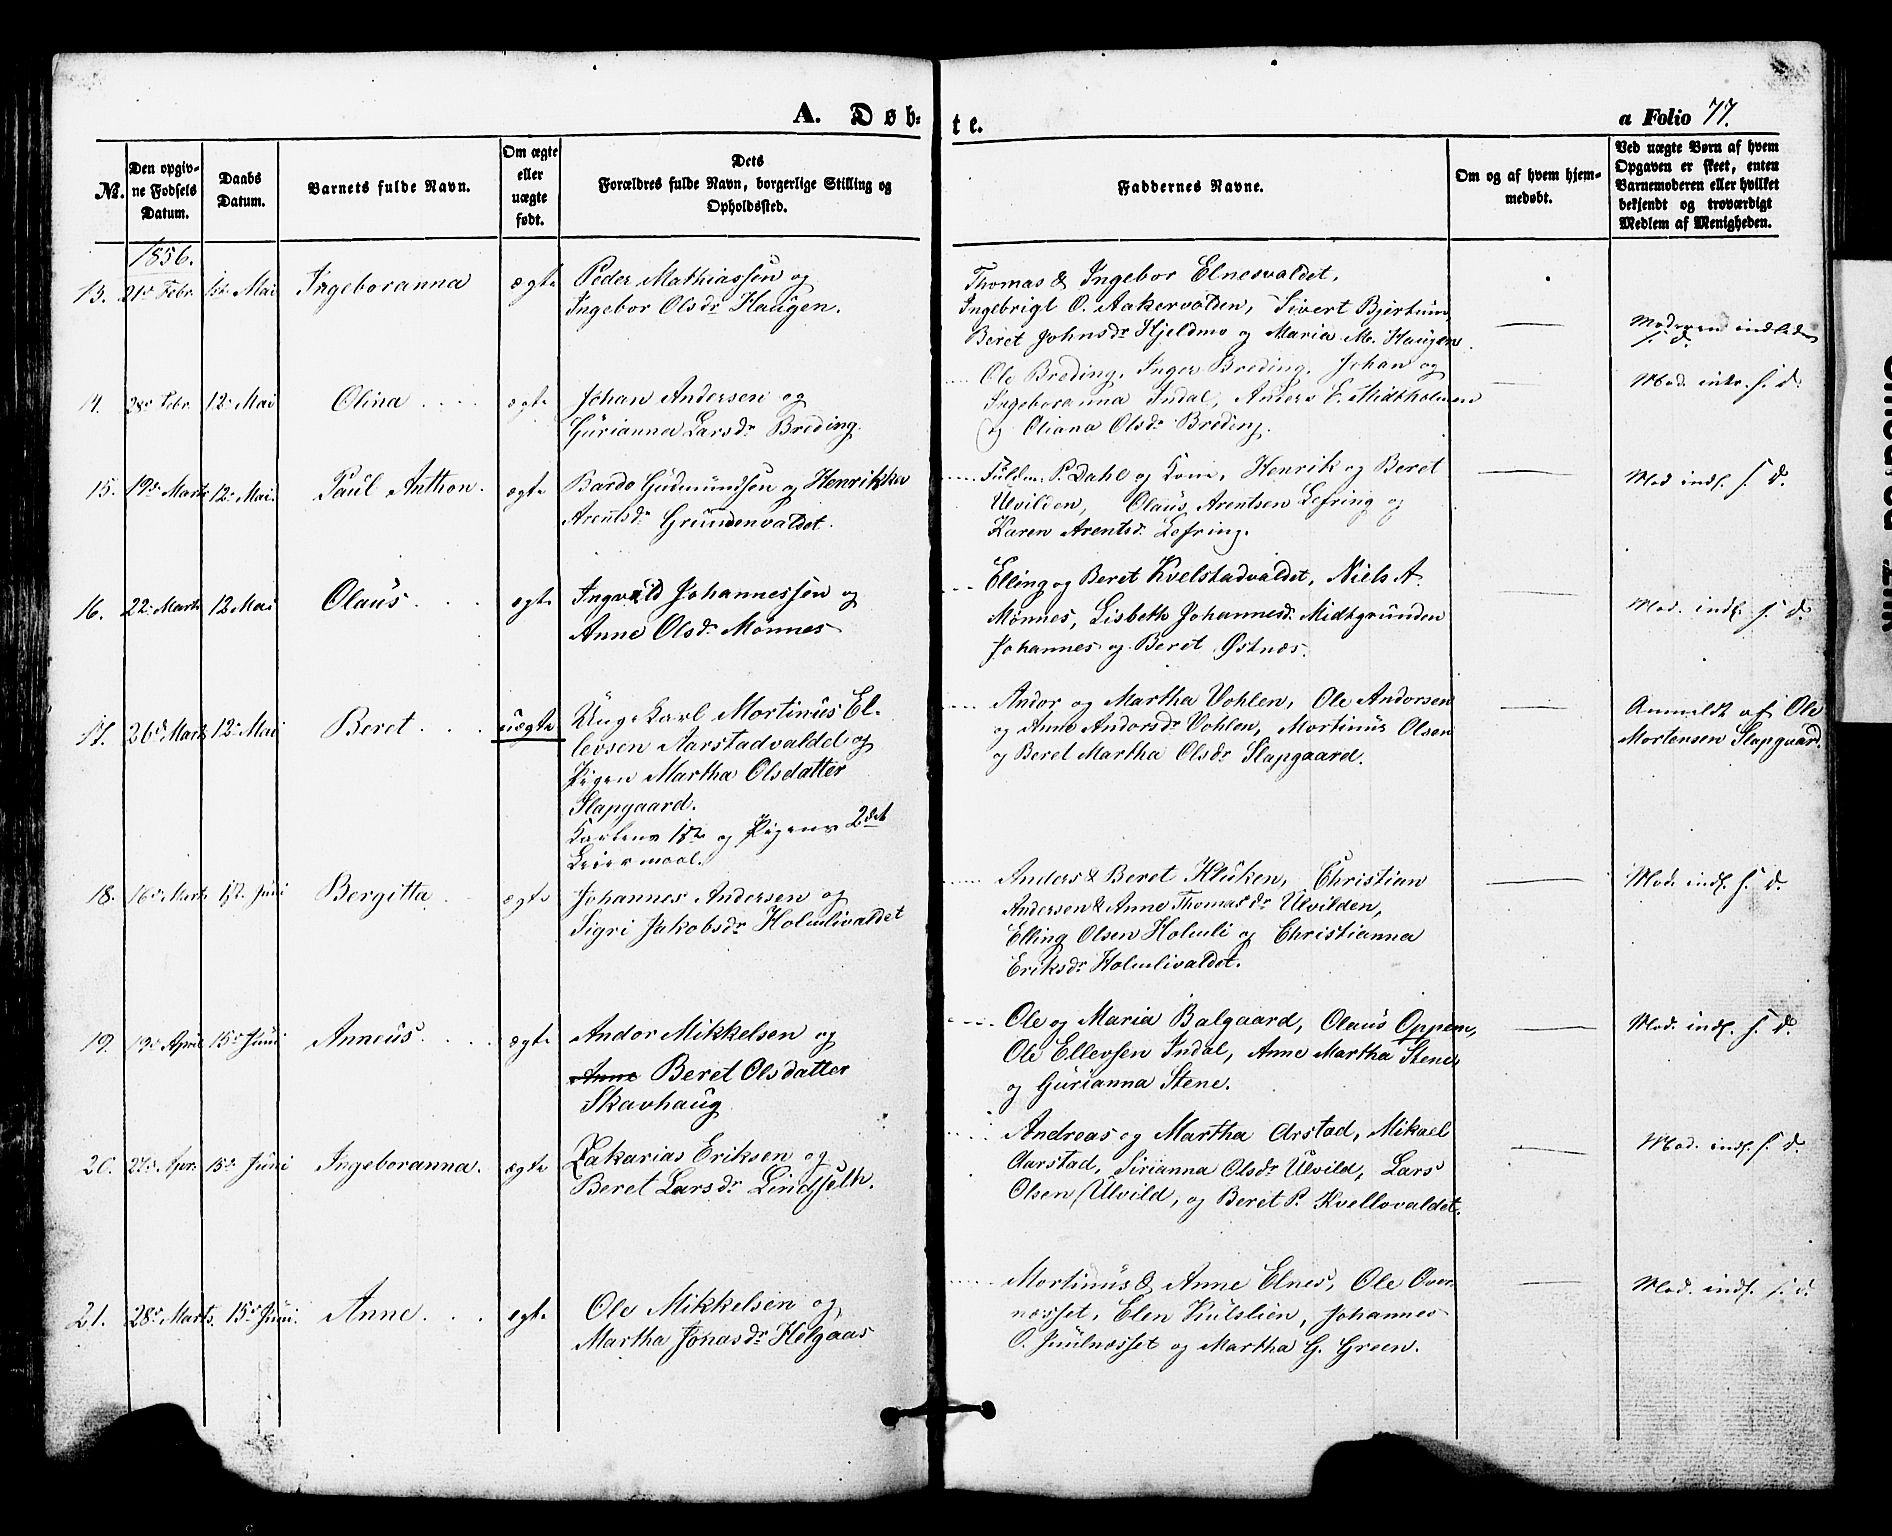 A. Døb-te.
a Folio 77.
№. Den opgivne Fødsels Datum. Daabs Datum. Barnets fulde Navn. Om ægte eller uægte født. Dets Forældres fulde Navn, borgerlige Stilling og Opholdssted. Faddernes Navne. Om og af hvem hjemmedøbt. Ved uægte Børn af hvem Opgaven er skeet, enten Barnemoderen eller hvilket bekjendt og troværdigt Medlem af Menigheden.
1856.
13. 21de Febr. 1ste Mai Ingeboranna ægte
Peder Mathiassen og
Ingebor Olsdr Haugen.
Thomas & Ingebor Elnesvaldet,
Ingebrigt O. Aakervolden, Sivert Bjertum,
Beret Johnsdr Hjeldmo og Maria M. Haugen.
s. D.
14. 28de Febr. 12te Mai Olina . . . . ægte
Johan Andersen og
Gurianna Larsdr Breding.
Ole Breding, Inger Breding, Johan og
Ingeboranna Indal, Anders E. Midtholmen
og Oliana Olsdr Breding.
Mod. intr. s. D.
15. 19de Marts 12te Mai. Paul Anthon. ægte
Bardo Gudmundsen og Henrikka
Arentsdr Grundenvaldet.
P. Dahl og Kone, Henrik og Beret
Ulvilden, Olaus Arentsen Lefring og
Karen Arentsd. Lefring.
Mod indl. s. D.
16. 22de Marts 12 Mai Olaus . . . ægte
Ingvald Johannessen og
Anne Olsdr Mønnes
Elling og Beret Kvelstadvaldet, Niels A.
Mønnes, Lisbeth Johannesd. Midtgrunden
Johannes og Beret Østnæs.
Mod. indl. s. D.
17. 26de Marts 12te Mai Beret . . . uægte
Ungekarl Mortinus El-
levsen Aarstadvaldet og
Pigen Martha Olsdatter
Slapgaard.
Karlens 1ste og Pigens 2det
Leiermaal.
Andor og Martha Vohlen, Ole Andorsen
og Anne Andorsdr Vohlen, Mortinus Olsen
og Beret Martha Olsdr Slapgaard.
Anmeldt af Ole
Mortensen Slapgaard.
18. 16de Marts 1ste Juni Bergitta ægte
Johannes Andersen og
Sigri Jakobsdr Holmlivaldet
Anders & Beret Kluken, Christian
Andersen & Anne Thomasdr Ulvilden,
Elling Olsen Holmli og Christianna
Eriksdr Holmlivaldet.
Mod. indl. s. D.
19. 19de April 15de Juni Anneus. . . . ægte
Andor Mikkelsen og
Anne Beret Olsdatter
Skavhaug
Ole og Maria Balgaard, Olaus Oppem,
Ole Ellevsen Indal, Anne Martha Stene
og Gurianna Stene.
Mod. indl. s. D.
20. 27de Apr. 15de Juni Ingeboranna. ægte
Zakarias Eriksen og
Beret Larsdr Lindseth.
Andreas og Martha Arstad, Mikael
Aarstad, Sirianna Olsdr Ulvild, Lars
Olsen Ulvild, og Beret P. Kvellovaldet.
Mod. indl. s. D.
21. 28de Marts. 15de Juni. Anne. . . ægte
Ole Mikkelsen og
Martha Jonasdr Helgaas
Mortinus & Anne Elnes, Ole Over-
næsset, Elen Kulslien, Johannes
O. Juulnæsset og Martha G. Green.
Mod. indl. s. D.